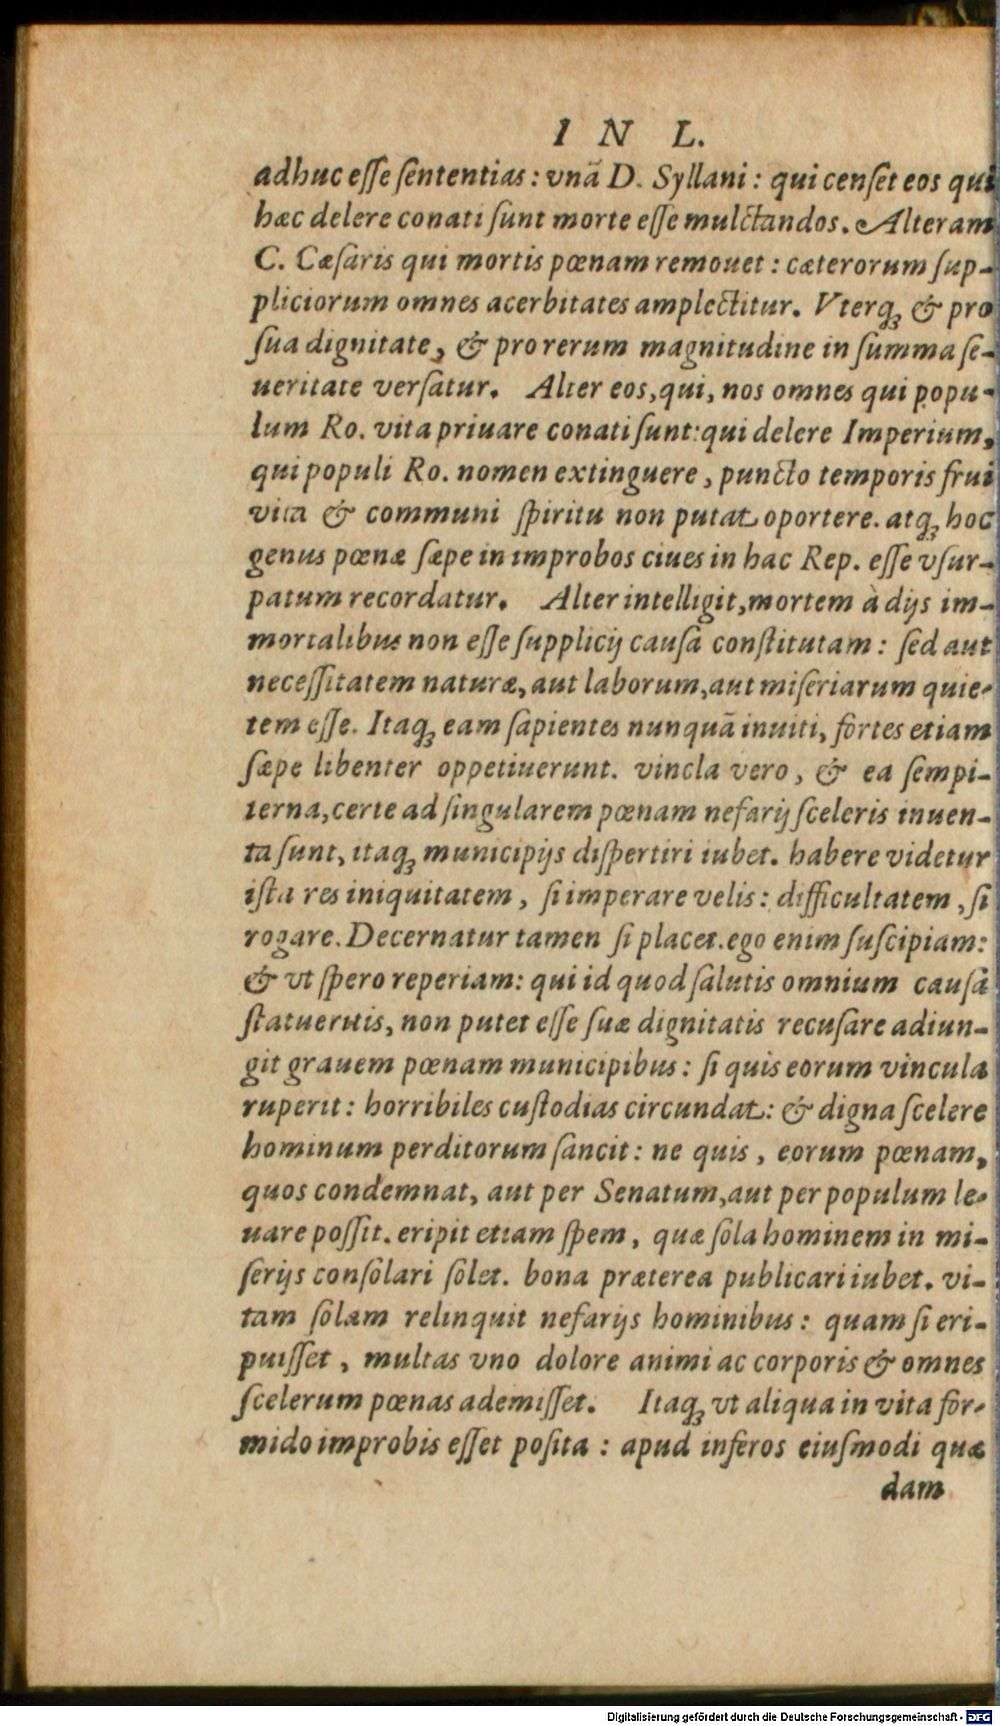 I N L.
adhuc eſſe ſententias: vnã D. Syllani: qui cenſet eos qui
hæc delere conati ſunt morte eſſe mulctandos. Alteram
C. Cæſaris qui mortis pœnam remouet: cæterorum ſup-
pliciorum omnes acerbitates amplectitur. Vterqꝫ & pro
ſua dignitate, & pro rerum magnitudine in ſumma ſe-
ueritate verſatur. Alter eos, qui, nos omnes qui popu-
lum Ro. vita priuare conati ſunt: qui delere Imperium,
qui populi Ro. nomen extinguere, puncto temporis frui
vita & communi ſpiritu non putat oportere. atqꝫ hoc
genus pœnæ ſæpe in improbos ciues in hac Rep. eſſe vſur-
patum recordatur. Alter intelligit, mortem à dijs im-
mortalibus non eſſe ſupplicij causâ conſtitutam: ſed aut
neceſſitatem naturæ, aut laborum, aut miſeriarum quie-
tem eſſe. Itaqꝫ eam ſapientes nunquã inuiti, fortes etiam
ſæpe libenter oppetiuerunt. vincla vero, & ea ſempi-
terna, certe ad ſingularem pœnam nefarij ſceleris inuen-
ta ſunt, itaqꝫ municipijs diſpertiri iubet. habere videtur
iſta res iniquitatem, ſi imperare velis: difficultatem, ſi
rogare. Decernatur tamen ſi placet. ego enim ſuſcipiam:
& vt ſpero reperiam: qui id quod ſalutis omnium cauſâ
ſtatueritis, non putet eſſe ſuæ dignitatis recuſare adiun-
git grauem pœnam municipibus: ſi quis eorum vincula
ruperit: horribiles cuſtodias circundat: & digna ſcelere
hominum perditorum ſancit: ne quis, eorum pœnam,
quos condemnat, aut per Senatum, aut per populum le-
uare poſſit. eripit etiam ſpem, quæ ſola hominem in mi-
ſerijs conſolari ſolet. bona præterea publicari iubet. vi-
tam ſolam relinquit nefarijs hominibus: quam ſi eri-
puiſſet, multas vno dolore animi ac corporis & omnes
ſcelerum pœnas ademiſſet. Itaqꝫ vt aliqua in vita for-
mido improbis eſſet poſita: apud inferos eiuſmodi quæ
dam
Digitalisierung gefördert durch die Deutsche Forschungsgemeinschaft - DFG